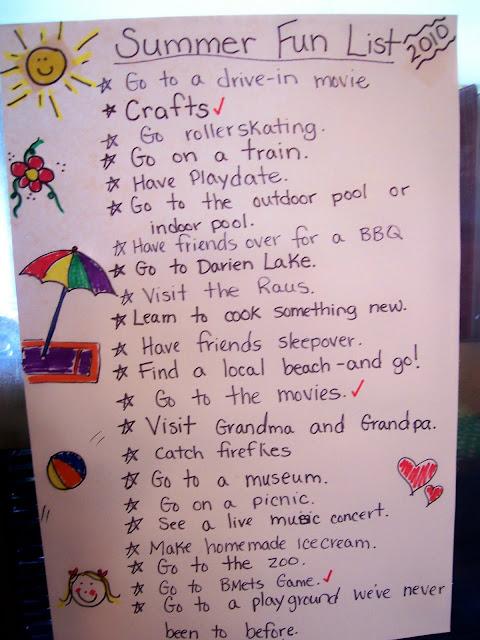 Summer Fun List 2010
☆ Go to a drive-in movie
☆ Crafts ✓
☆ Go rollerskating.
☆ Go on a train.
☆ Have Playdate.
☆ Go to the outdoor pool or
indoor pool.
☆ Have friends over for a BBQ
☆ Go to Darien Lake.
☆ Visit the Raus.
☆ Learn to cook something new.
☆ Have friends sleepover.
☆ Find a local beach-and go!
☆ Go to the movies. ✓
☆ Visit Grandma and Grandpa.
☆ Catch fireflies
☆ Go to a museum.
☆ Go on a picnic.
☆ See a live music concert.
☆ Make homemade icecream.
☆ Go to the zoo.
☆ Go to BMets Game. ✓
☆ Go to a playground we've never
been to before.